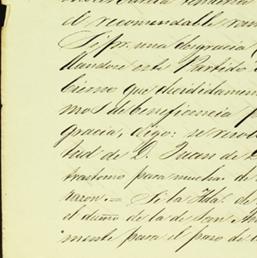 de recomendable
Si pr. una desgracia
llandose este Partido
bierno que decididamen
mos de beneficencia p
gracia, digo: se resol
tud de D. Juan de
trastorno para mucha. de
razon. — Si la Hda. de
el dueño de la de San An
mente para el paso de